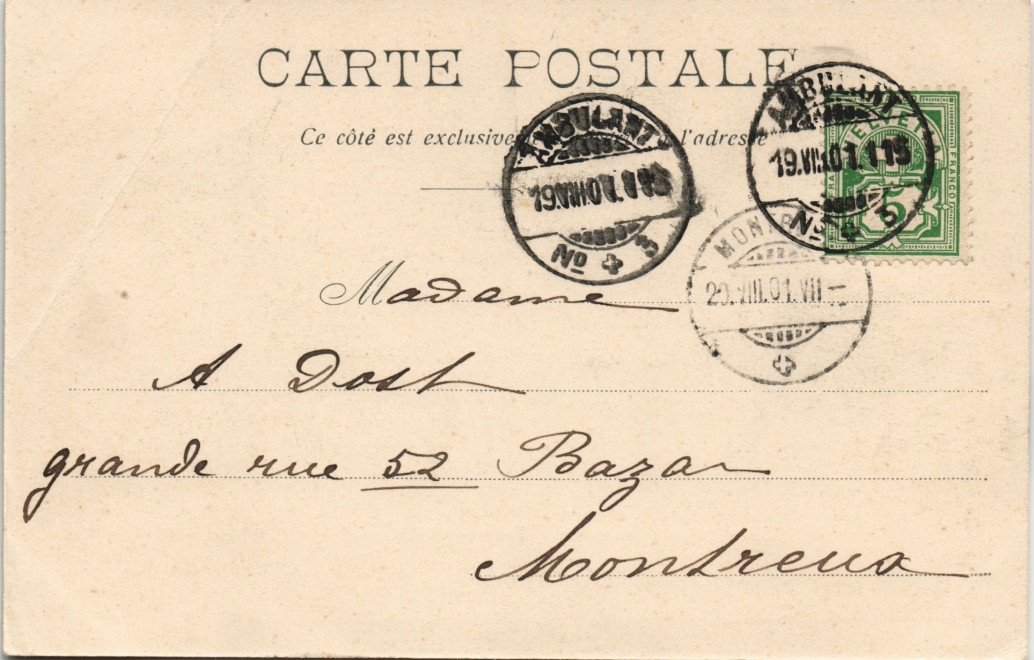 CARTE POSTALE
Ce côté est exclusive l'adresse
AMBULANT
Nº 3
AMBULANT
19.VIII.01.
Nº 3
HELVETIA
FRANCO
5
MONTR
20.VIII.01.VII
Madame
A Dost
grande rue 52 Bazar
Montreux